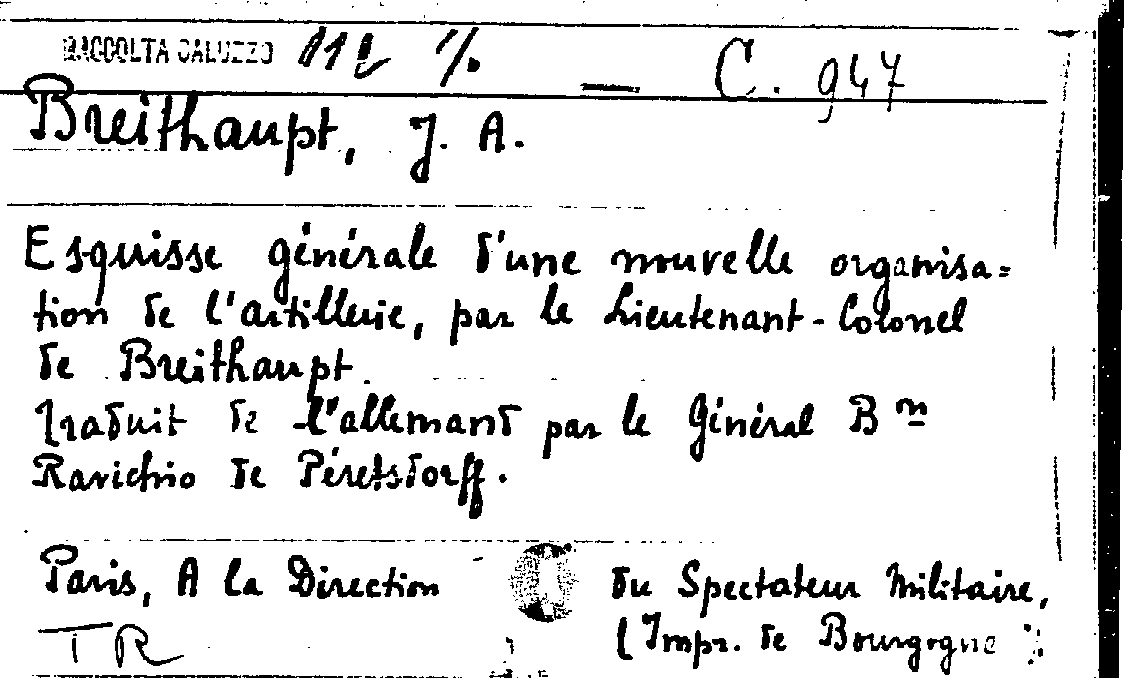 RACCOLTA SALUZZO 112 % — C. 947
Breithaupt, J. A.
Esquisse générale d'une nouvelle organisa=
tion de l'artillerie, par le Lieutenant-Colonel
de Breithaupt.
Traduit de l'allemand par le Général Bⁿ
Ravichio de Péretsdorff.
Paris, A la Direction du Spectateur Militaire,
TR (Impr. de Bourgogne